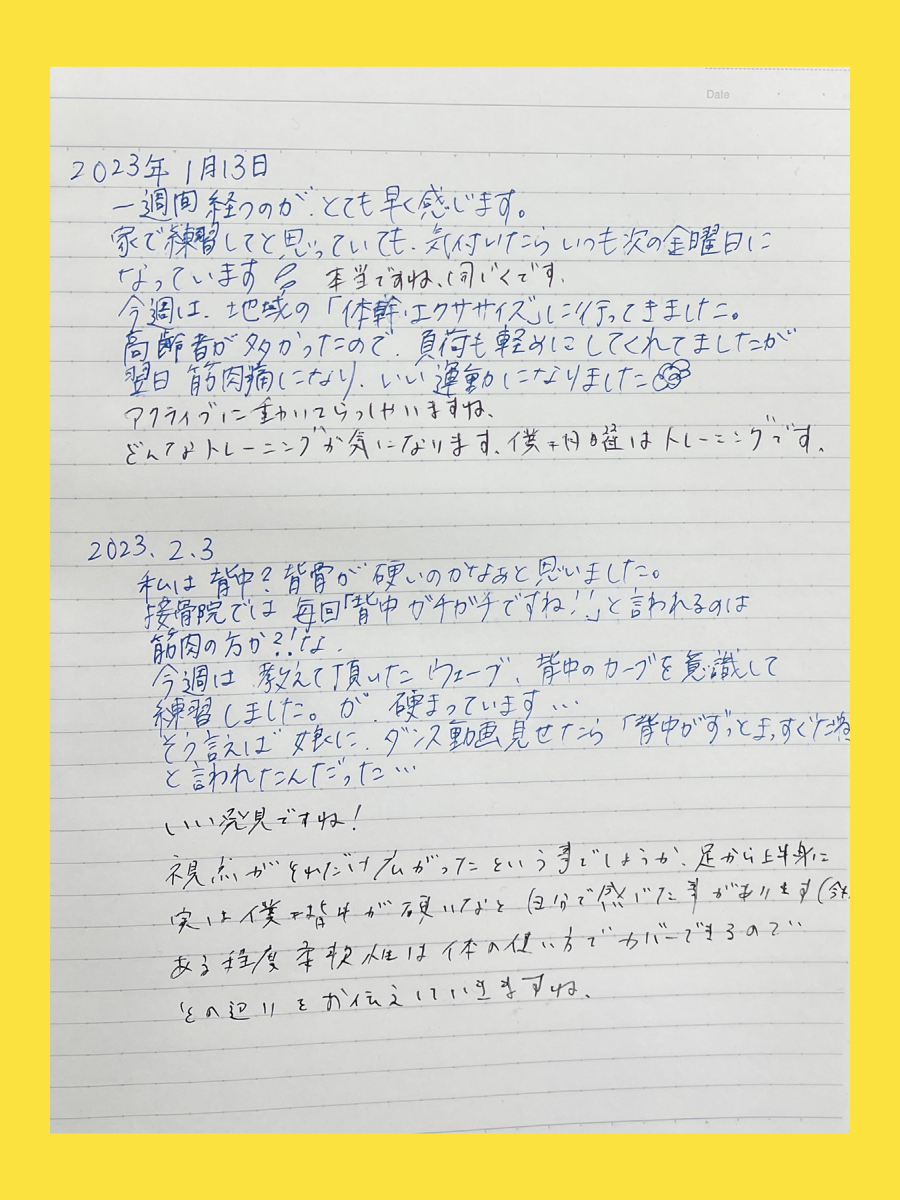 Date
2023年 1月13日
一週間 経つのが、とても早く感じます。
家で練習してと思っていても、気付いたらいつも次の金曜日に
なっています 本当ですね、同じくです。
今週は、地域の「体幹・エクササイズ」に行ってきました。
高齢者が多かったので、負荷も軽めにしてくれてましたが
翌日 筋肉痛になり、いい運動になりました
アクティブに動いてらっしゃいますね、
どんなトレーニングか気になります、僕も月曜はトレーニングです、
2023. 2. 3
私は 背中? 背骨が 硬いのかなぁと思いました。
接骨院では 毎回「背中 ガチガチですね!!」と言われるのは
筋肉の方か?!な、
今週は 教えて頂いたウェーブ、背中のカーブを意識して
練習しました。が、硬まっています…
そう言えば 娘に、ダンス動画見せたら「背中がずっとまっすぐだね
と言われたんだった…
いい発見ですね!
視点がそれだけ広がったという事でしょうか、足から上半身に
実は僕も背中が硬いなと自分で感じた事があります(今も
ある程度柔軟性は体の使い方でカバーできるので…
その辺りをお伝えしていきますね、